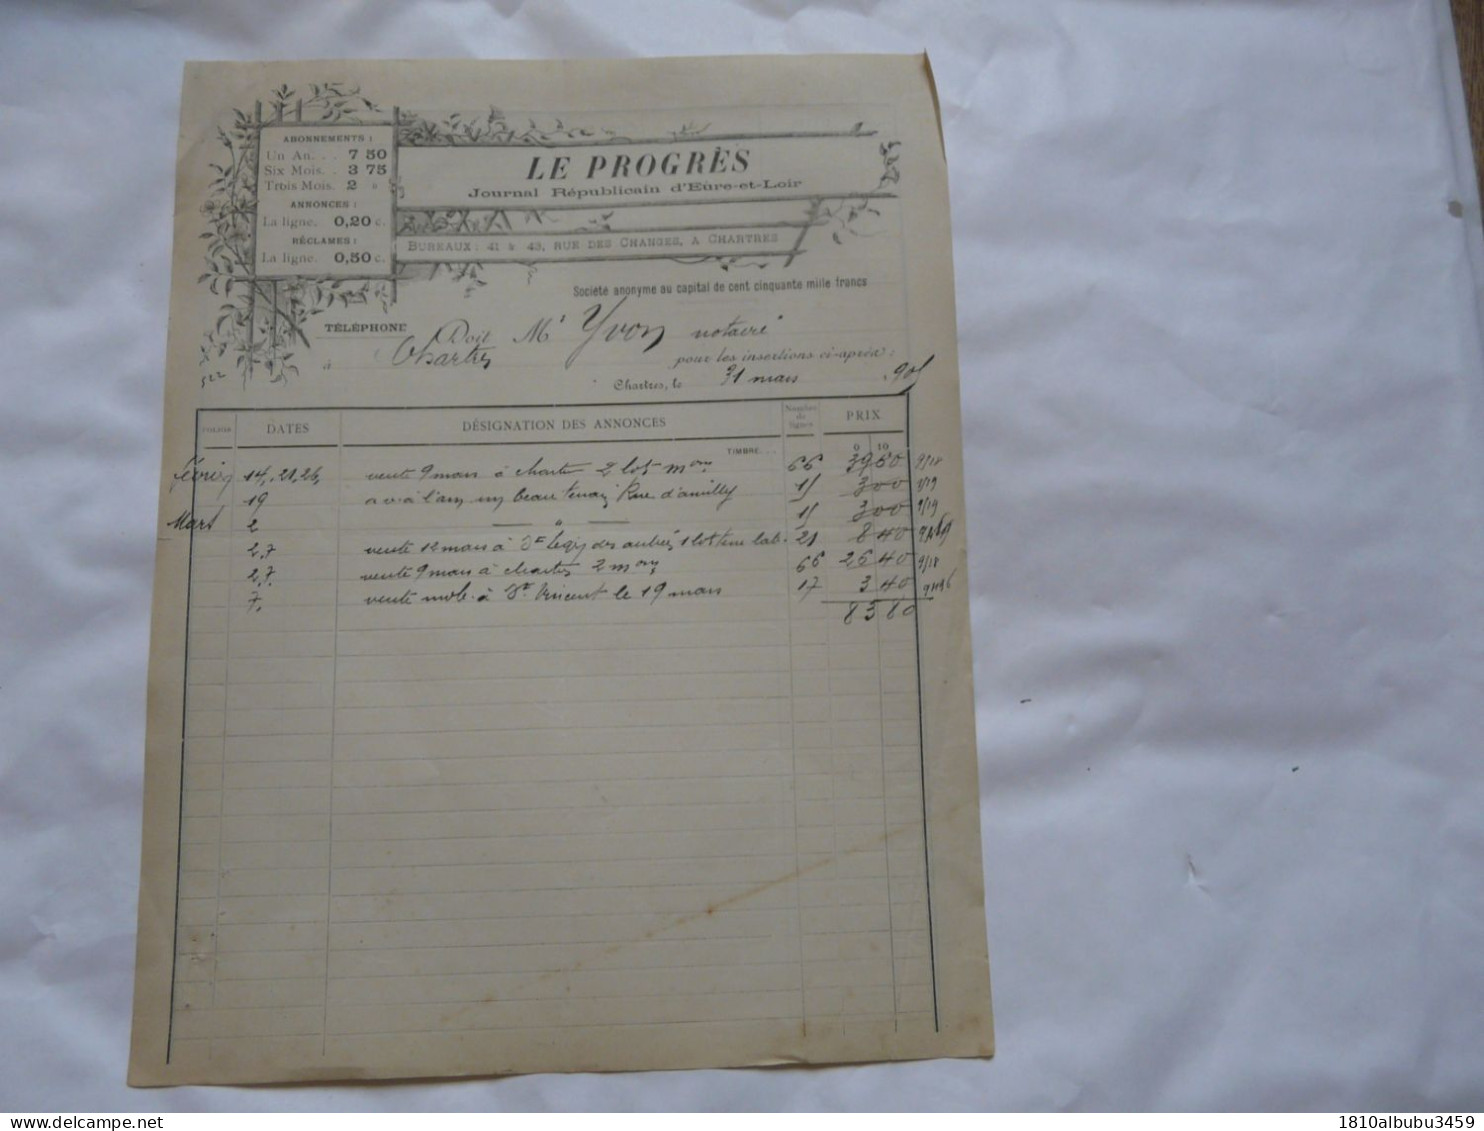 ABONNEMENTS :
Un An. . . 7 50
Six Mois. . 3 75
Trois Mois. 2 »
ANNONCES :
La ligne. 0,20 c.
RÉCLAMES :
La ligne. 0,50 c.
LE PROGRÈS
Journal Républicain d'Eure-et-Loir
BUREAUX : 41 & 43, RUE DES CHANGES, A CHARTRES
Société anonyme au capital de cent cinquante mille francs
TÉLÉPHONE
Doit Me Yvon notaire
à Chartres pour les insertions ci-après :
522
Chartres, le 31 mars 1905
FOLIOS DATES DÉSIGNATION DES ANNONCES Nombre de lignes PRIX
TIMBRE. . . 0 10
février 14, 21, 26, vente 9 mars à chartres 2 lots m 66 39 60 9/18
19 a v à l'am un beau terrain Rue d'amilly 15 3 00 9/19
Mars 2 — " — 15 3 00 9/19
2,7 vente 12 mars à St 1 lot terre lab. 21 8 40
2,7, vente 9 mars à chartres 2 m 66 26 40 9/18
7, vente mob. à St Vincent le 19 mars 17 3 40
83 80
1810albubu3459